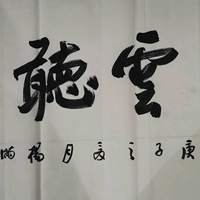 雲聽
庚子之夏月楊